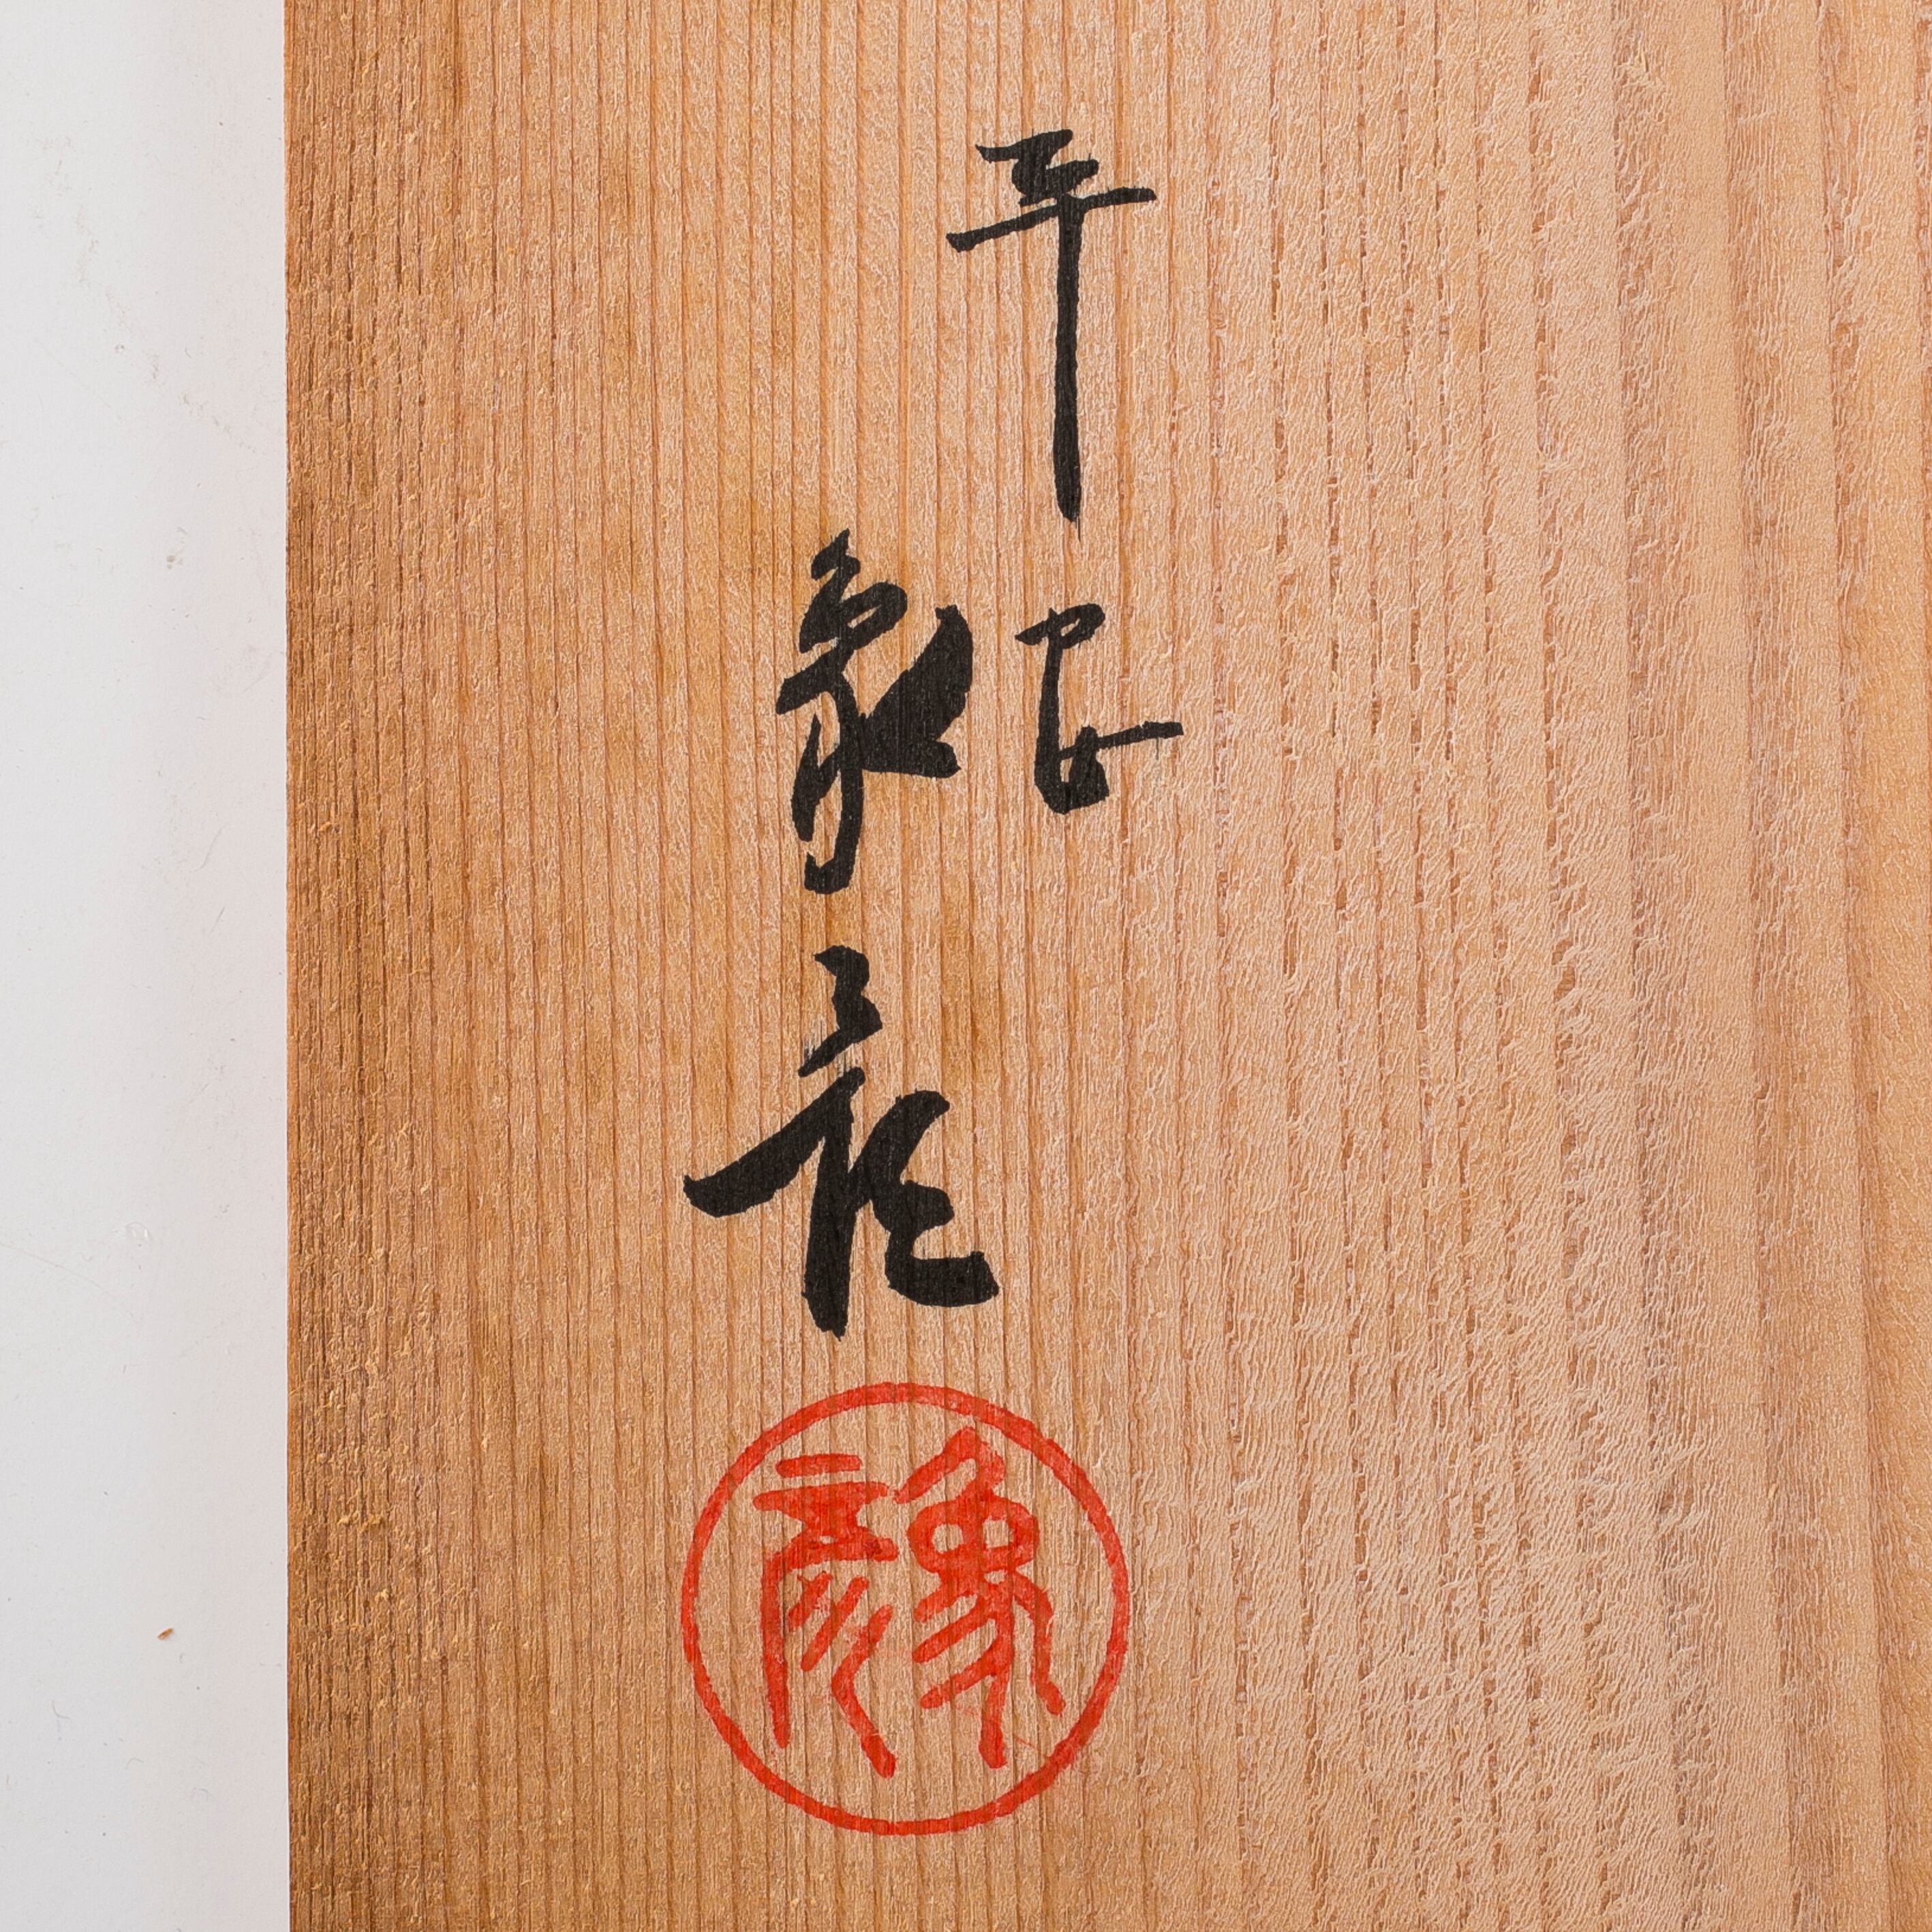 平安
象彦
象彦